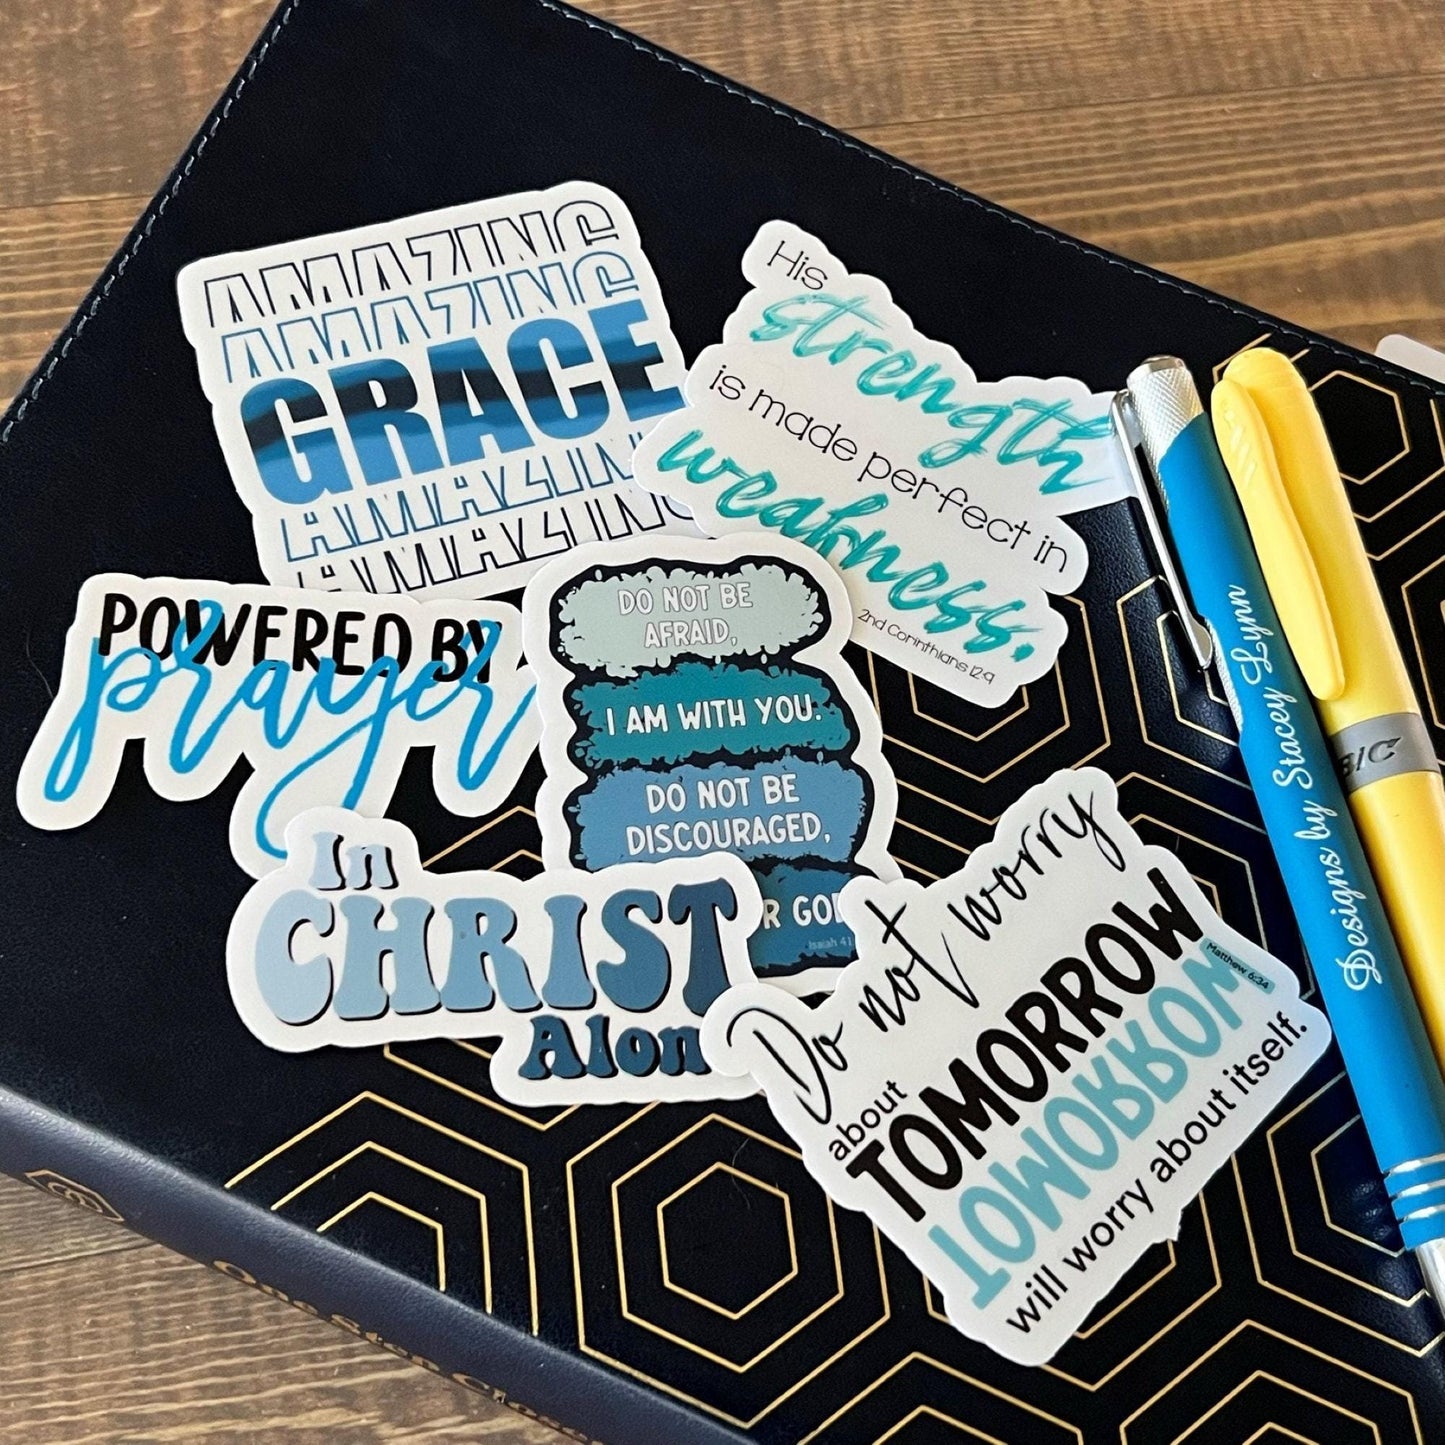 AMAZING
AMAZING
GRACE
AMAZING
AMAZING
His
strength
is made perfect in
weakness.
2nd Corinthians 12:9
POWERED BY
prayer
DO NOT BE
AFRAID,
I AM WITH YOU.
DO NOT BE
DISCOURAGED,
GOD
Isaiah 41
In
CHRIST
Alone
Do not worry
about
TOMORROW
TOMORROW
Matthew 6:34
will worry about itself.
Designs by Stacey Lynn
BIC
One Step Closer